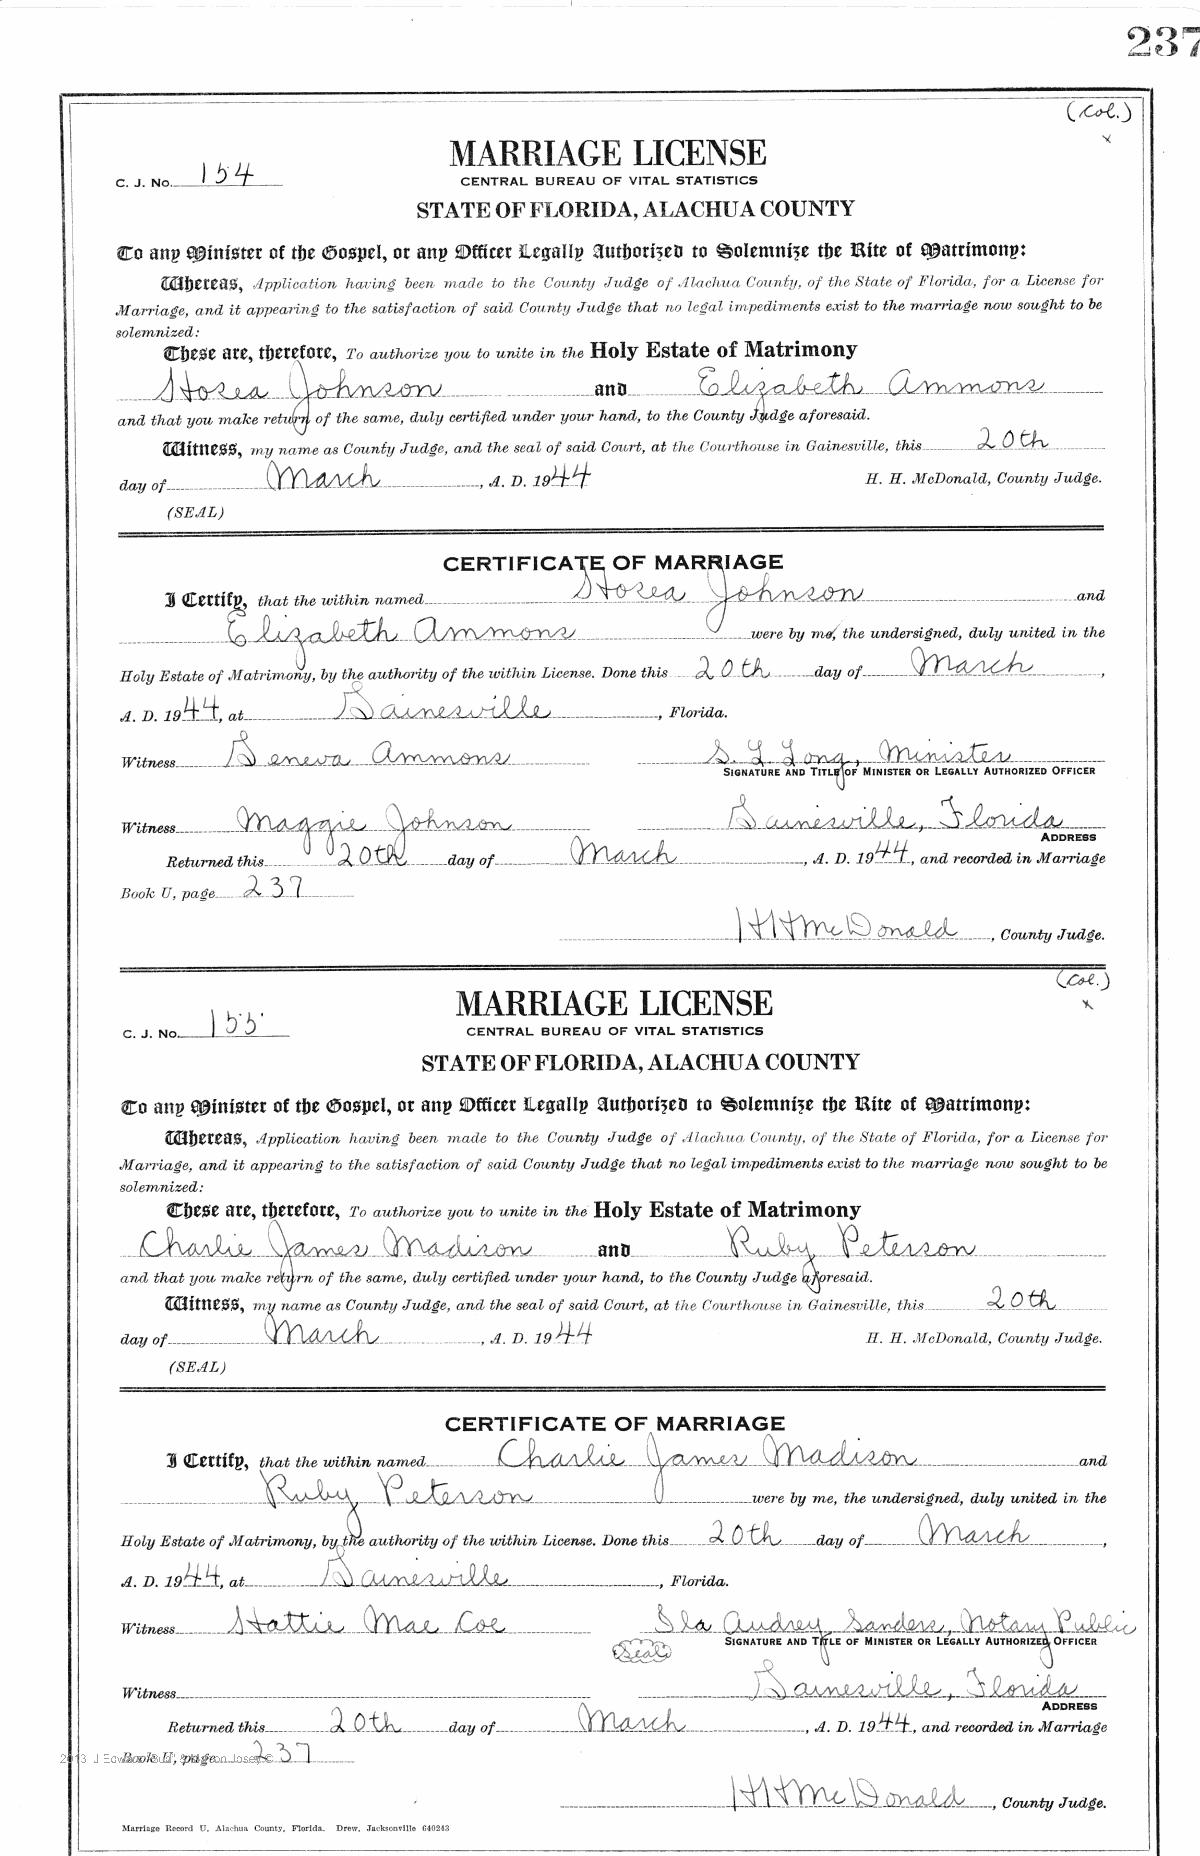 237
(Col.)
x
MARRIAGE LICENSE
C. J. No. 154
CENTRAL BUREAU OF VITAL STATISTICS
STATE OF FLORIDA, ALACHUA COUNTY
To any Minister of the Gospel, or any Officer Legally Authorized to Solemnize the Rite of Matrimony:
Whereas, Application having been made to the County Judge of Alachua County, of the State of Florida, for a License for
Marriage, and it appearing to the satisfaction of said County Judge that no legal impediments exist to the marriage now sought to be
solemnized:
These are, therefore, To authorize you to unite in the Holy Estate of Matrimony
Hosea Johnson and Elizabeth Ammons
and that you make return of the same, duly certified under your hand, to the County Judge aforesaid.
Witness, my name as County Judge, and the seal of said Court, at the Courthouse in Gainesville, this 20th
day of March, A. D. 1944 H. H. McDonald, County Judge.
(SEAL)
CERTIFICATE OF MARRIAGE
I Certify, that the within named Hosea Johnson and
Elizabeth Ammons were by me, the undersigned, duly united in the
Holy Estate of Matrimony, by the authority of the within License. Done this 20th day of March,
A. D. 1944, at Gainesville, Florida.
Witness Geneva Ammons S. L. Long, Minister
SIGNATURE AND TITLE OF MINISTER OR LEGALLY AUTHORIZED OFFICER
Witness Maggie Johnson Gainesville, Florida
ADDRESS
Returned this 20th day of March, A. D. 1944, and recorded in Marriage
Book U, page 237
H H McDonald, County Judge.
(Col.)
x
MARRIAGE LICENSE
C. J. No. 155
CENTRAL BUREAU OF VITAL STATISTICS
STATE OF FLORIDA, ALACHUA COUNTY
To any Minister of the Gospel, or any Officer Legally Authorized to Solemnize the Rite of Matrimony:
Whereas, Application having been made to the County Judge of Alachua County, of the State of Florida, for a License for
Marriage, and it appearing to the satisfaction of said County Judge that no legal impediments exist to the marriage now sought to be
solemnized:
These are, therefore, To authorize you to unite in the Holy Estate of Matrimony
Charlie James Madison and Ruby Peterson
and that you make return of the same, duly certified under your hand, to the County Judge aforesaid.
Witness, my name as County Judge, and the seal of said Court, at the Courthouse in Gainesville, this 20th
day of March, A. D. 1944 H. H. McDonald, County Judge.
(SEAL)
CERTIFICATE OF MARRIAGE
I Certify, that the within named Charlie James Madison and
Ruby Peterson were by me, the undersigned, duly united in the
Holy Estate of Matrimony, by the authority of the within License. Done this 20th day of March,
A. D. 1944, at Gainesville, Florida.
Witness Hattie Mae Coe Ila Audrey Sanders, Notary Public
(Seal) SIGNATURE AND TITLE OF MINISTER OR LEGALLY AUTHORIZED OFFICER
Witness Gainesville, Florida
ADDRESS
Returned this 20th day of March, A. D. 1944, and recorded in Marriage
Book U, page 237
2013 J
H H McDonald, County Judge.
Marriage Record U, Alachua County, Florida. Drew, Jacksonville 640243